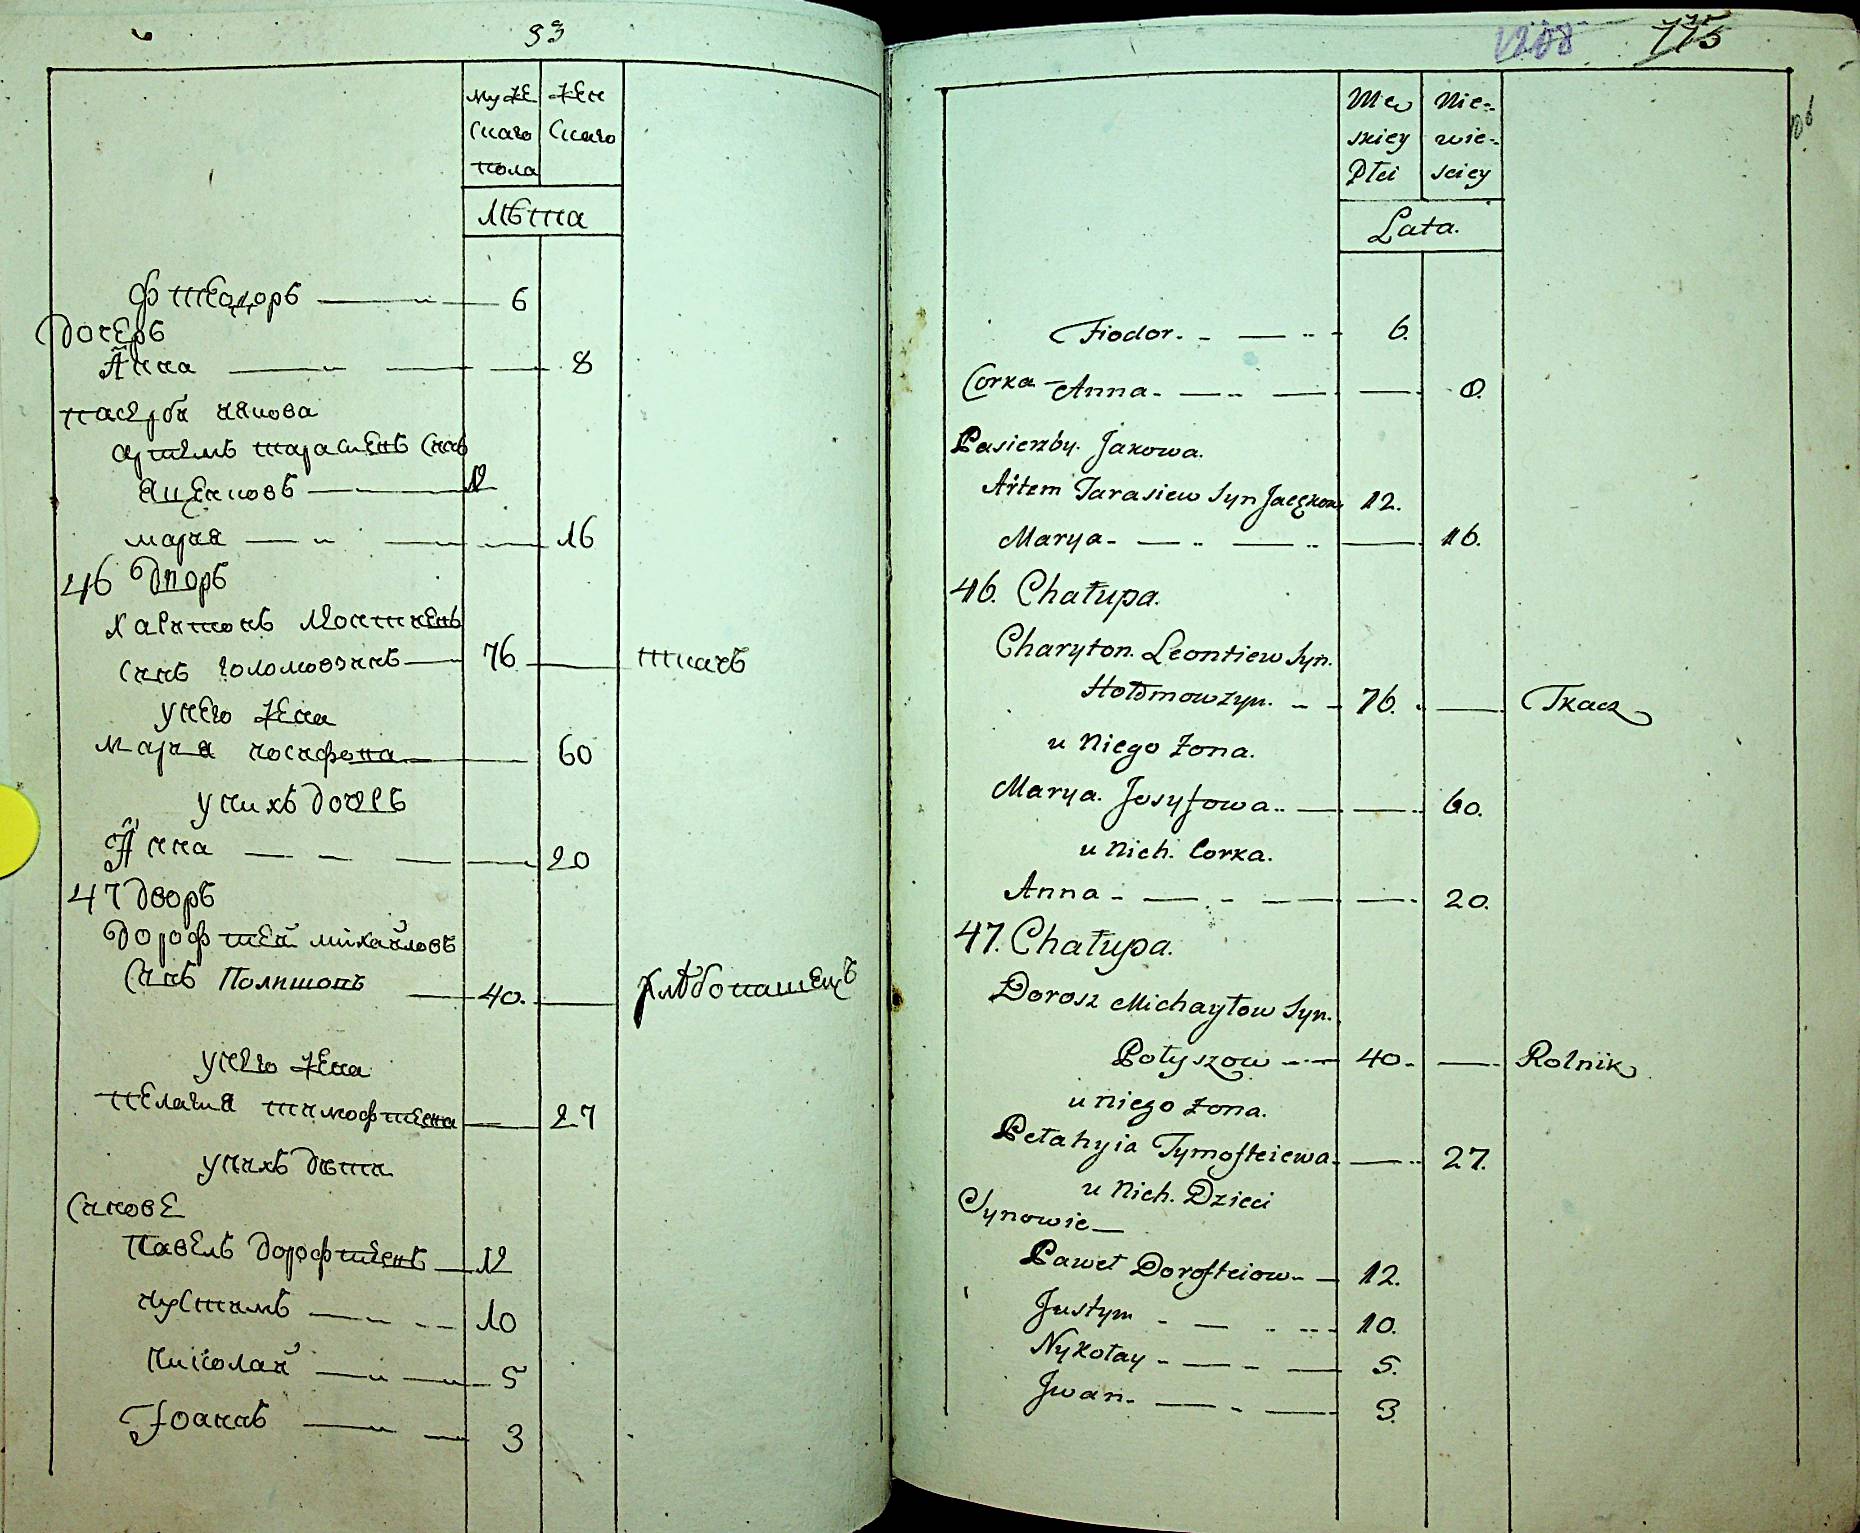 93
муже женскаго
скаго
пола
лѣта
Фтеодоръ 6
дочерь
Анна 8
пасерби якова
артемъ тарасиевъ снъ
яценковъ 12
мария 16
46 дворъ
харитонъ леонтиевъ
синъ голомовзинъ 76 ткачъ
у него жена
мария иосифова 60
у нихъ дочерь
Анна 20
47 дворъ
дорофтей михайловъ
синъ Полишовъ 40. хлѣбопашецъ
у него жена
пелагия тимофтиева 27
у нихъ дѣти
синове
павелъ дорофтиевъ 12
иустимъ 10
николай 5
Иоаннъ 3
1208 775
106
Mew Nie-
skiey wie-
Płci sciey
Lata.
Fiodor. 6.
Corka Anna. 8.
Pasierzby. Jakowa.
Artem Tarasiew Syn Jacękow 12.
Marya. 16.
46. Chałupa.
Charyton. Leontiew Syn.
Hołomowzyn. 76. Tkacz
u Niego Żona.
Marya. Josyfowa. 60.
u Nich. Corka.
Anna 20.
47. Chałupa.
Dorosz Michayłow Syn.
Połyszow 40. Rolnik
u niego żona.
Pełahyia Tymofteiewa. 27.
u Nich. Dzieci
Synowie
Paweł Dorofteiow 12.
Justym 10.
Nykołay 5.
Jwan. 3.